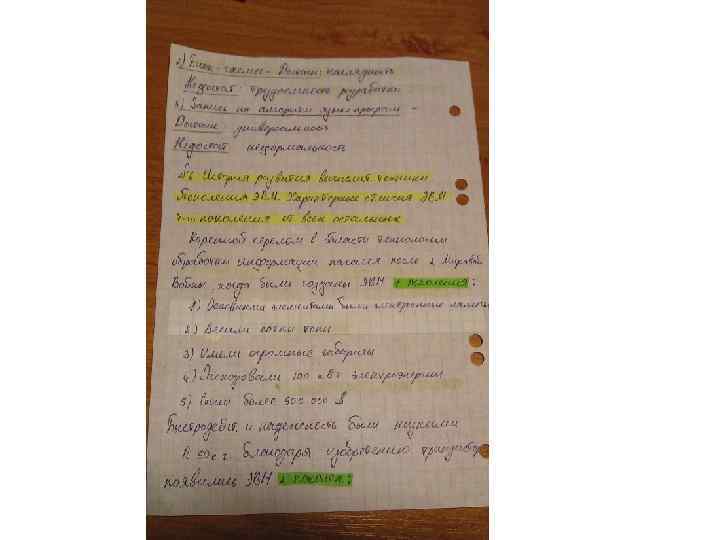 2) Блок-схемы - Достоин: наглядность
Недостат: трудоемкость разработки
3) Запись на алгоритм языке програм -
Достоин: универсальност
Недостат неформальность
№6 История развития вычислит. техники
Поколения ЭВМ. Характерные отличия ЭВМ
поколения от всех остальных
Коренной перелом в области технологии
обработки информации начался после 2 Мировой
Войны, когда были созданы ЭВМ 1 поколения:
1) Основными элементами были электронные лампы
2) Весили сотни тонн
3) Имели огромные габариты
4) Расходовали 100 кВт электроэнергии
5) более 500 000 $
Быстродейст. и надежность были низкими
В 50е г. благодаря изобретению транзистор
появились ЭВМ 2 поколен: